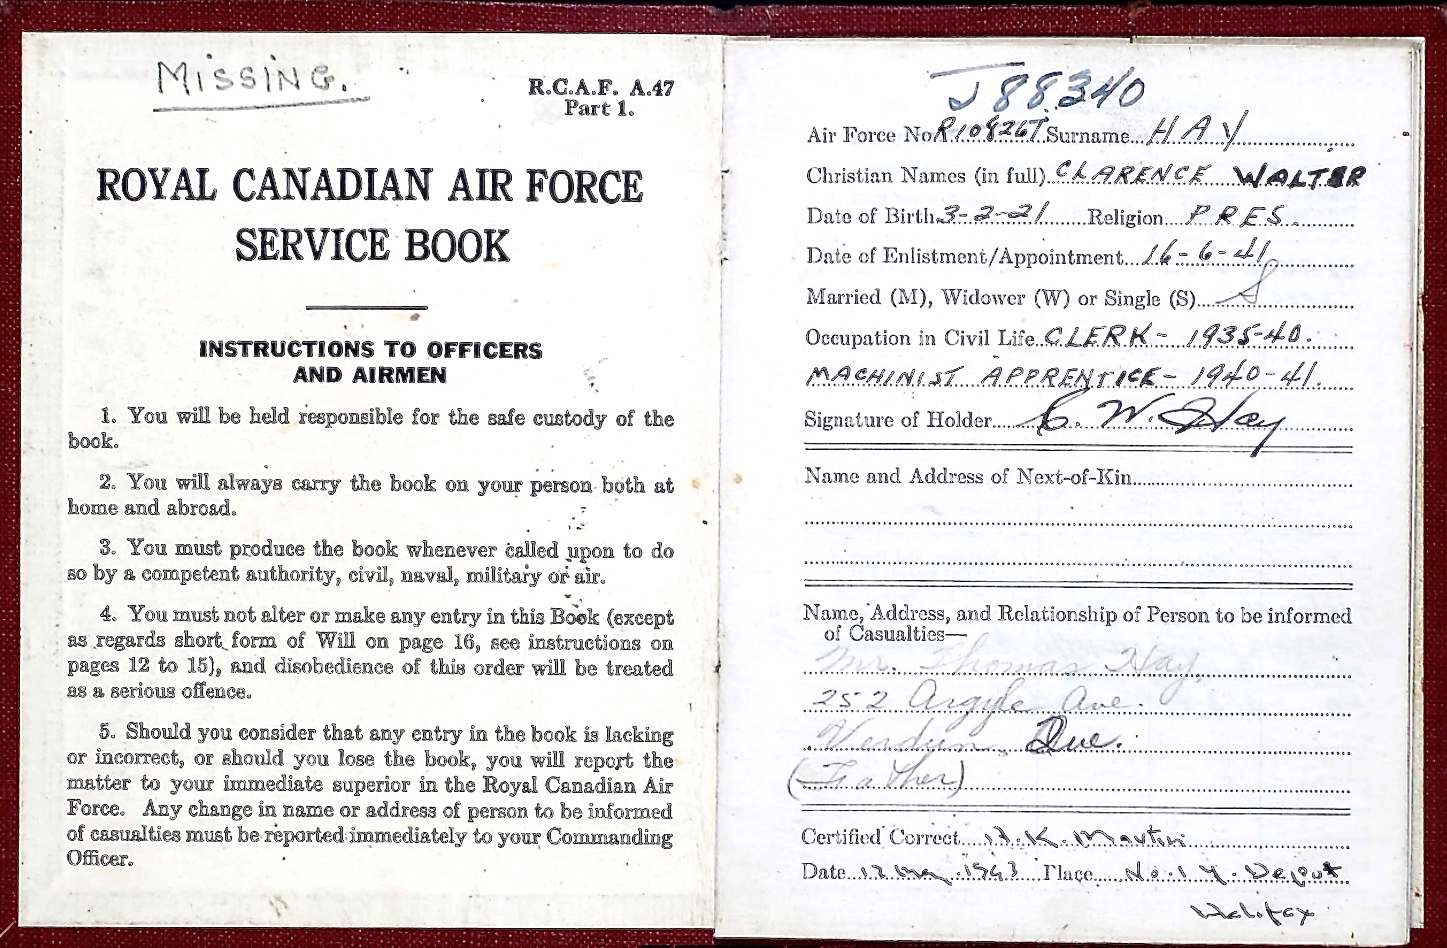 MISSING.
R.C.A.F. A.47
Part 1.
ROYAL CANADIAN AIR FORCE
SERVICE BOOK
INSTRUCTIONS TO OFFICERS
AND AIRMEN
1. You will be held responsible for the safe custody of the
book.
2. You will always carry the book on your person both at
home and abroad.
3. You must produce the book whenever called upon to do
so by a competent authority, civil, naval, military or air.
4. You must not alter or make any entry in this Book (except
as regards short form of Will on page 16, see instructions on
pages 12 to 15), and disobedience of this order will be treated
as a serious offence.
5. Should you consider that any entry in the book is lacking
or incorrect, or should you lose the book, you will report the
matter to your immediate superior in the Royal Canadian Air
Force. Any change in name or address of person to be informed
of casualties must be reported immediately to your Commanding
Officer.
J88340
Air Force No. R108267 Surname HAY
Christian Names (in full) CLARENCE WALTER
Date of Birth 3-2-21 Religion PRES.
Date of Enlistment/Appointment 16-6-41
Married (M), Widower (W) or Single (S) S
Occupation in Civil Life CLERK - 1935-40.
MACHINIST APPRENTICE - 1940-41.
Signature of Holder C. W. Hay
Name and Address of Next-of-Kin
Name, Address, and Relationship of Person to be informed
of Casualties—
Mr. Thomas Hay,
252 Argyle Ave.
Verdun, Que.
(Father)
Certified Correct H. K. Martin
Date 12 May 1943 Place No. 1 Y. Depot
Halifax